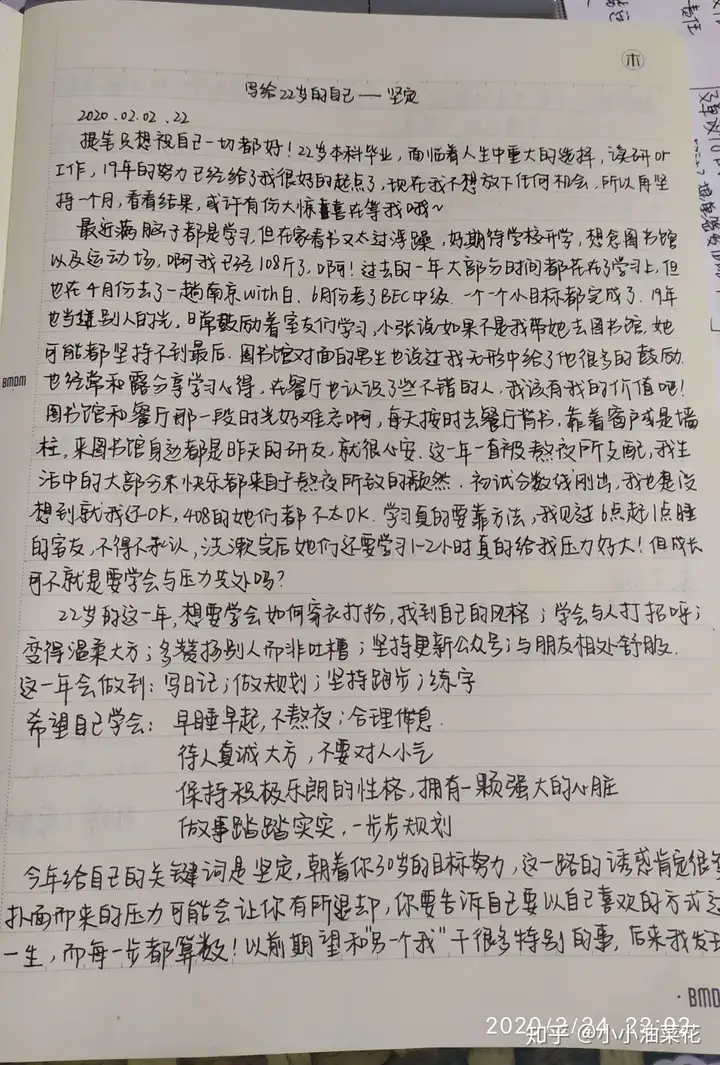 木
写给22岁的自己——坚定
2020.02.02.22
提笔只想祝自己一切都好！22岁本科毕业，面临着人生中重大的选择，读研or
工作，19年的努力已经给了我很好的起点了，现在我不想放下任何机会，所以再坚
持一个月，看看结果，或许有份大惊喜在等我哦~
最近满脑子都是学习，但在家看书又太过浮躁，好期待学校开学，想念图书馆
以及运动场，啊我已经108斤了，啊！过去的一年大部分时间都花在了学习上，但
也在4月份去了一趟南京with白，6月份考了BEC中级，一个个小目标都完成了。19年
也当过别人的光，日常鼓励着室友们学习，小张说如果不是我带她去图书馆，她
可能都坚持不到最后。图书馆对面的男生也说过我无形中给了他很多的鼓励，
也经常和露分享学习心得，在餐厅也认识了些不错的人，我该有我的价值吧！
图书馆和餐厅那一段时光好难忘啊，每天按时去餐厅背书，靠着窗户或是墙
柱，来图书馆身边都是昨天的研友，就很心安。这一年一直被熬夜所支配，我生
活中的大部分不快乐都来自于熬夜所致的颓然。初试分数线刚出，我也是没
想到就我还OK，408的她们都不太OK。学习真的要靠方法，我见过6点起1点睡
的室友，不得不承认，洗漱完后她们还要学习1-2小时真的给我压力好大！但成长
可不就是要学会与压力共处吗？
22岁的这一年，想要学会如何穿衣打扮，找到自己的风格；学会与人打招呼；
变得温柔大方；多赞扬别人而非吐槽；坚持更新公众号；与朋友相处舒服。
这一年会做到：写日记；做规划；坚持跑步；练字
希望自己学会：早睡早起，不熬夜；合理作息。
待人真诚大方，不要对人小气
保持积极乐朗的性格，拥有一颗强大的心脏
做事踏踏实实，一步步规划
今年给自己的关键词是坚定，朝着你30岁的目标努力，这一路的诱惑肯定很多
扑面而来的压力可能会让你有所退却，你要告诉自己要以自己喜欢的方式过
一生，而每一步都算数！以前期望和“另一个我”干很多特别的事，后来我发现
BMDM
BMDM
2020/2/24 22:02
知乎 @小小油菜花